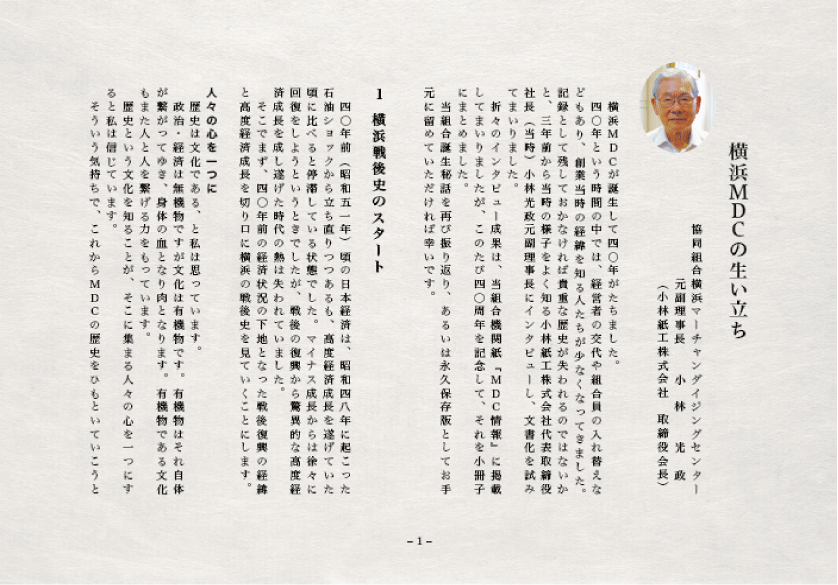 横浜MDCの生い立ち
協同組合横浜マーチャンダイジングセンター
元副理事長　小林　光政
（小林紙工株式会社　取締役会長）
横浜MDCが誕生して四〇年がたちました。
四〇年という時間の中では、経営者の交代や組合員の入れ替えな
どもあり、創業当時の経緯を知る人たちが少なくなってきました。
記録として残しておかなければ貴重な歴史が失われるのではないか
と、三年前から当時の様子をよく知る小林紙工株式会社代表取締役
社長（当時）小林光政元副理事長にインタビューし、文書化を試み
てまいりました。
折々のインタビュー成果は、当組合機関紙『MDC情報』に掲載
してまいりましたが、このたび四〇周年を記念して、それを小冊子
にまとめました。
当組合誕生秘話を再び振り返り、あるいは永久保存版としてお手
元に留めていただければ幸いです。
1　横浜戦後史のスタート
四〇年前（昭和五一年）頃の日本経済は、昭和四八年に起こった
石油ショックから立ち直りつつあるも、高度経済成長を遂げていた
頃に比べると停滞している状態でした。マイナス成長からは徐々に
回復をしようというときでしたが、戦後の復興から驚異的な高度経
済成長を成し遂げた時代の熱は失われていました。
そこでまず、四〇年前の経済状況の下地となった戦後復興の経緯
と高度経済成長を切り口に横浜の戦後史を見ていくことにします。
人々の心を一つに
歴史は文化である、と私は思っています。
政治・経済は無機物ですが文化は有機物です。有機物はそれ自体
が繋がってゆき、身体の血となり肉となります。有機物である文化
もまた人と人を繋げる力をもっています。
歴史という文化を知ることが、そこに集まる人々の心を一つにす
ると私は信じています。
そういう気持ちで、これからMDCの歴史をひもといていこうと
– 1 –